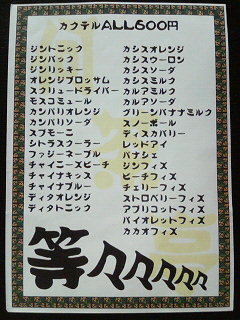 カクテルALL600円
ジントニック
ジンバック
ジンリッキー
オレンジブロッサム
スクリュードライバー
モスコミュール
カンパリオレンジ
カンパリソーダ
スプモーニ
シトラスクーラー
ファジーネーブル
チャイニーズピーチ
チャイナキッス
チャイナブルー
ディタオレンジ
ディタトニック
カシスオレンジ
カシスウーロン
カシスソーダ
カシスミルク
カルアミルク
カルアソーダ
グリーンバナナミルク
スノーボール
ディスカバリー
レッドアイ
パナシェ
ジンフィズ
ピーチフィズ
チェリーフィズ
ストロベリーフィズ
アプリコットフィズ
バイオレットフィズ
カカオフィズ
等々々々々々